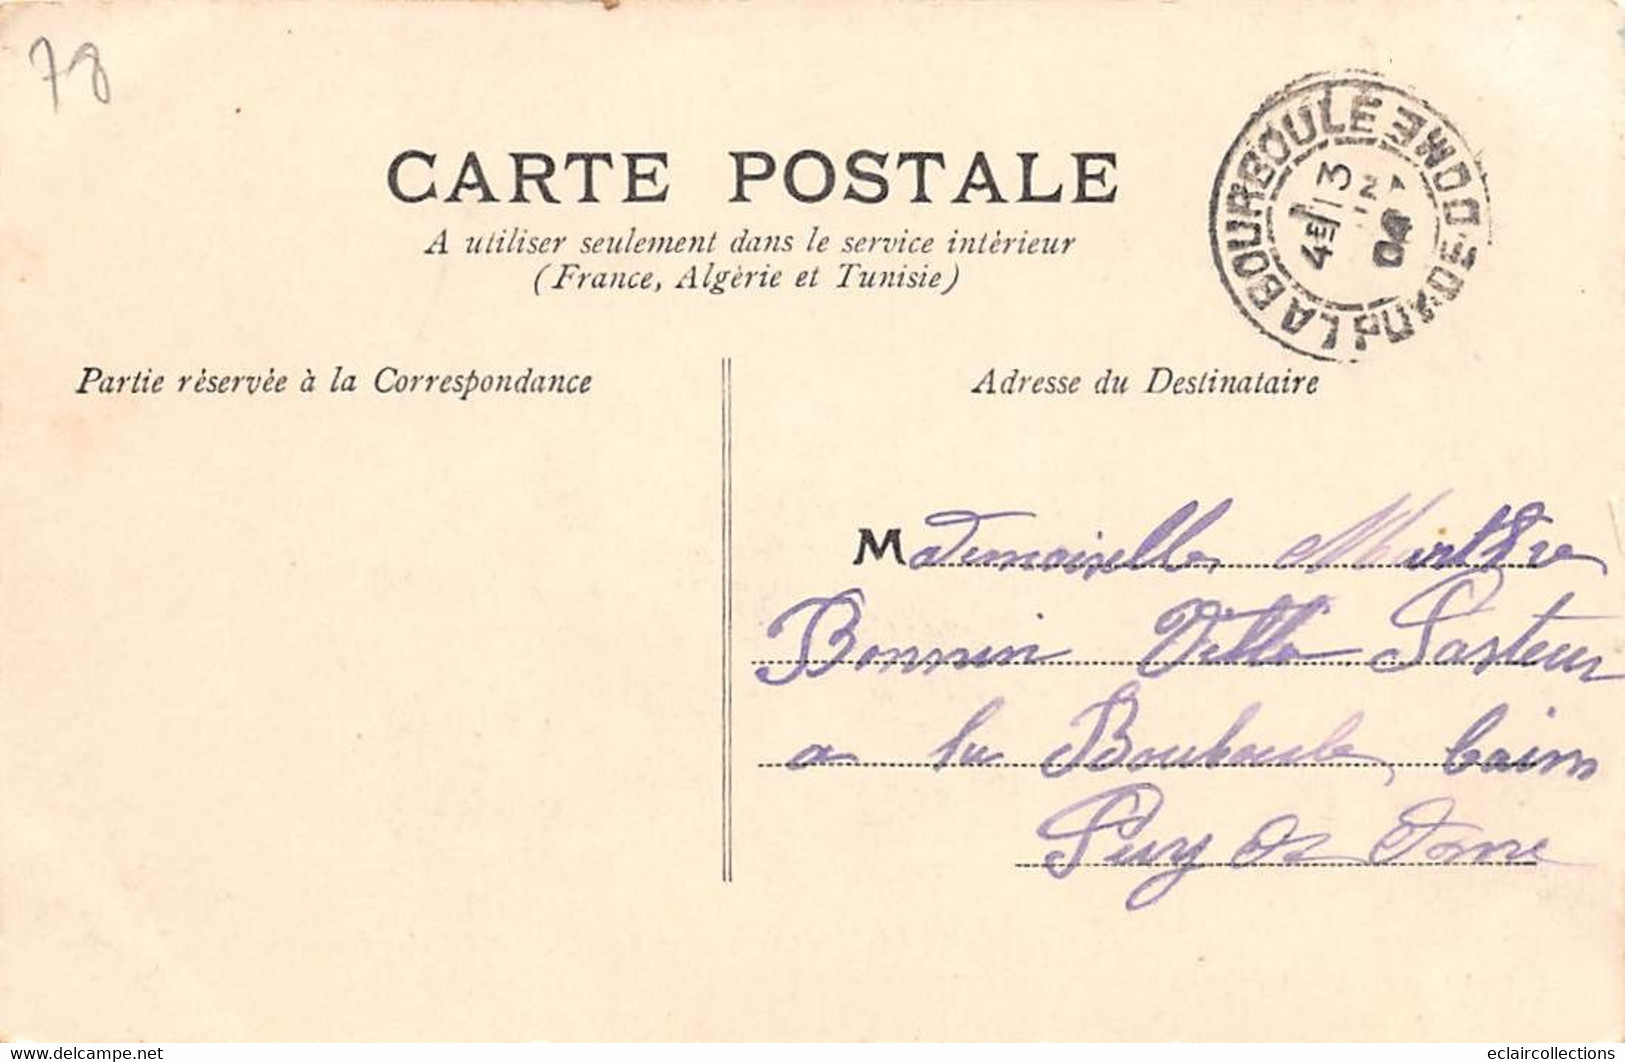 78
CARTE POSTALE
A utiliser seulement dans le service intérieur
(France, Algérie et Tunisie)
LA BOURBOULE PUY-DE-DOME
4E 13
04
Partie réservée à la Correspondance
Adresse du Destinataire
Mademoiselle Marthe
Bonnin Villa Pasteur
a la Bourboule, bains
Puy de Dome
www.delcampe.net
eclaircollections